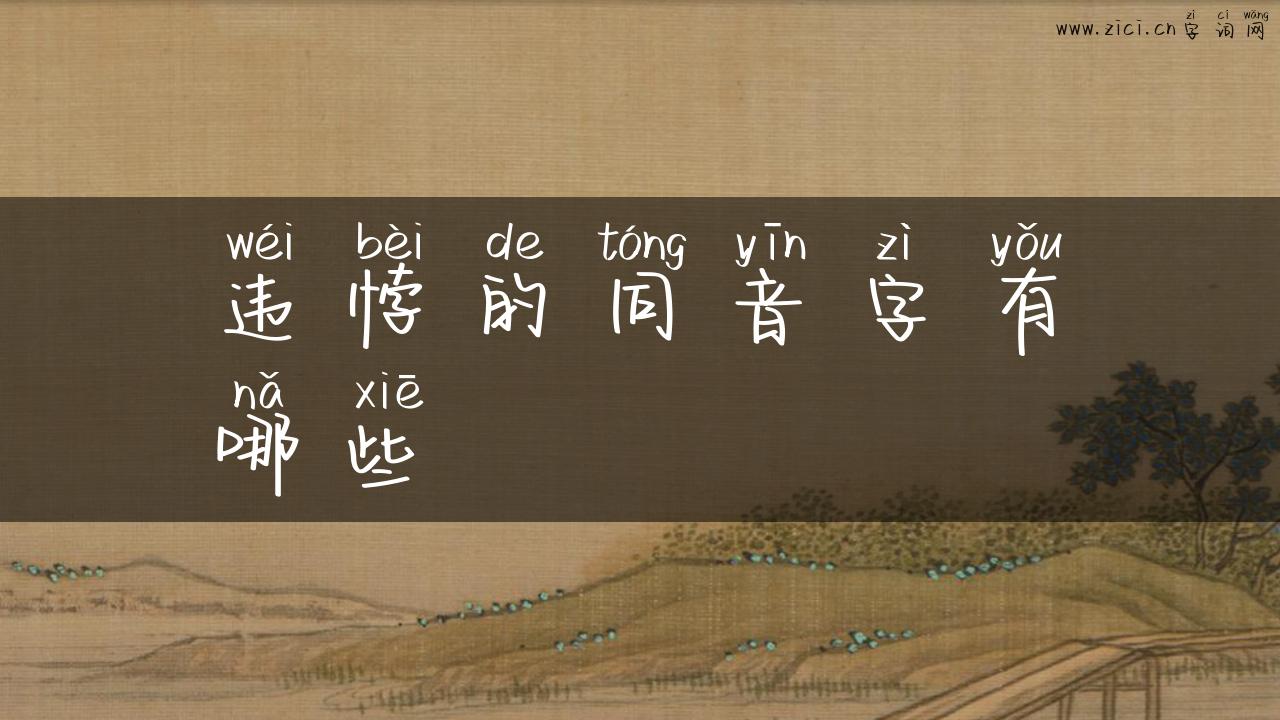 zì cí wǎng
www.zici.cn字词网
wéi bèi de tóng yīn zì yǒu
违悖的同音字有
nǎ xiē
哪些